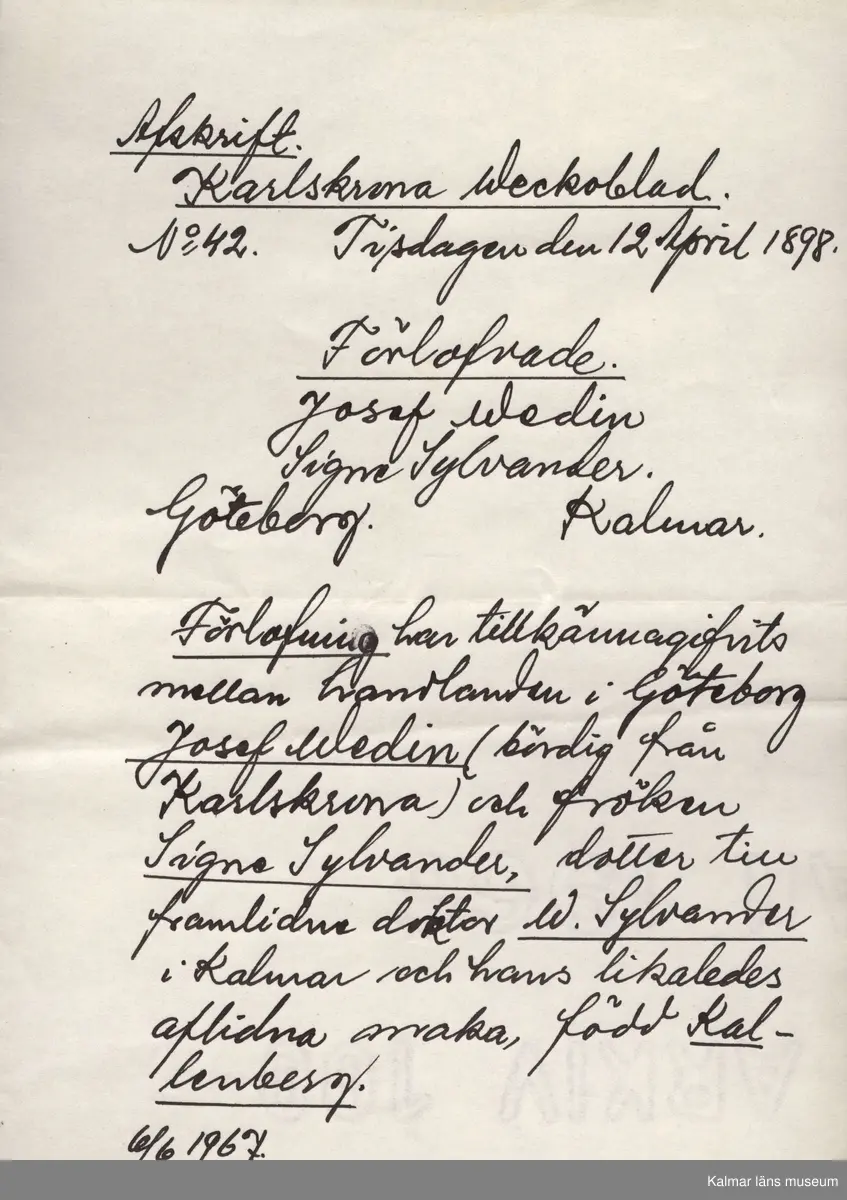 Afskrift.
Karlskrona Weckoblad.
No: 42. Tisdagen den 12 April 1898.
Förlofvade.
Josef Wedin
Signe Sylvander.
Göteborg. Kalmar.
Förlofning har tillkännagifvits
mellan handlanden i Göteborg
Josef Wedin (bördig från
Karlskrona) och fröken
Signe Sylvander, dotter till
framlidne doktor W. Sylvander
i Kalmar och hans likaledes
aflidna maka, född Kal-
lenberg.
6/6 1967.
Kalmar läns museum